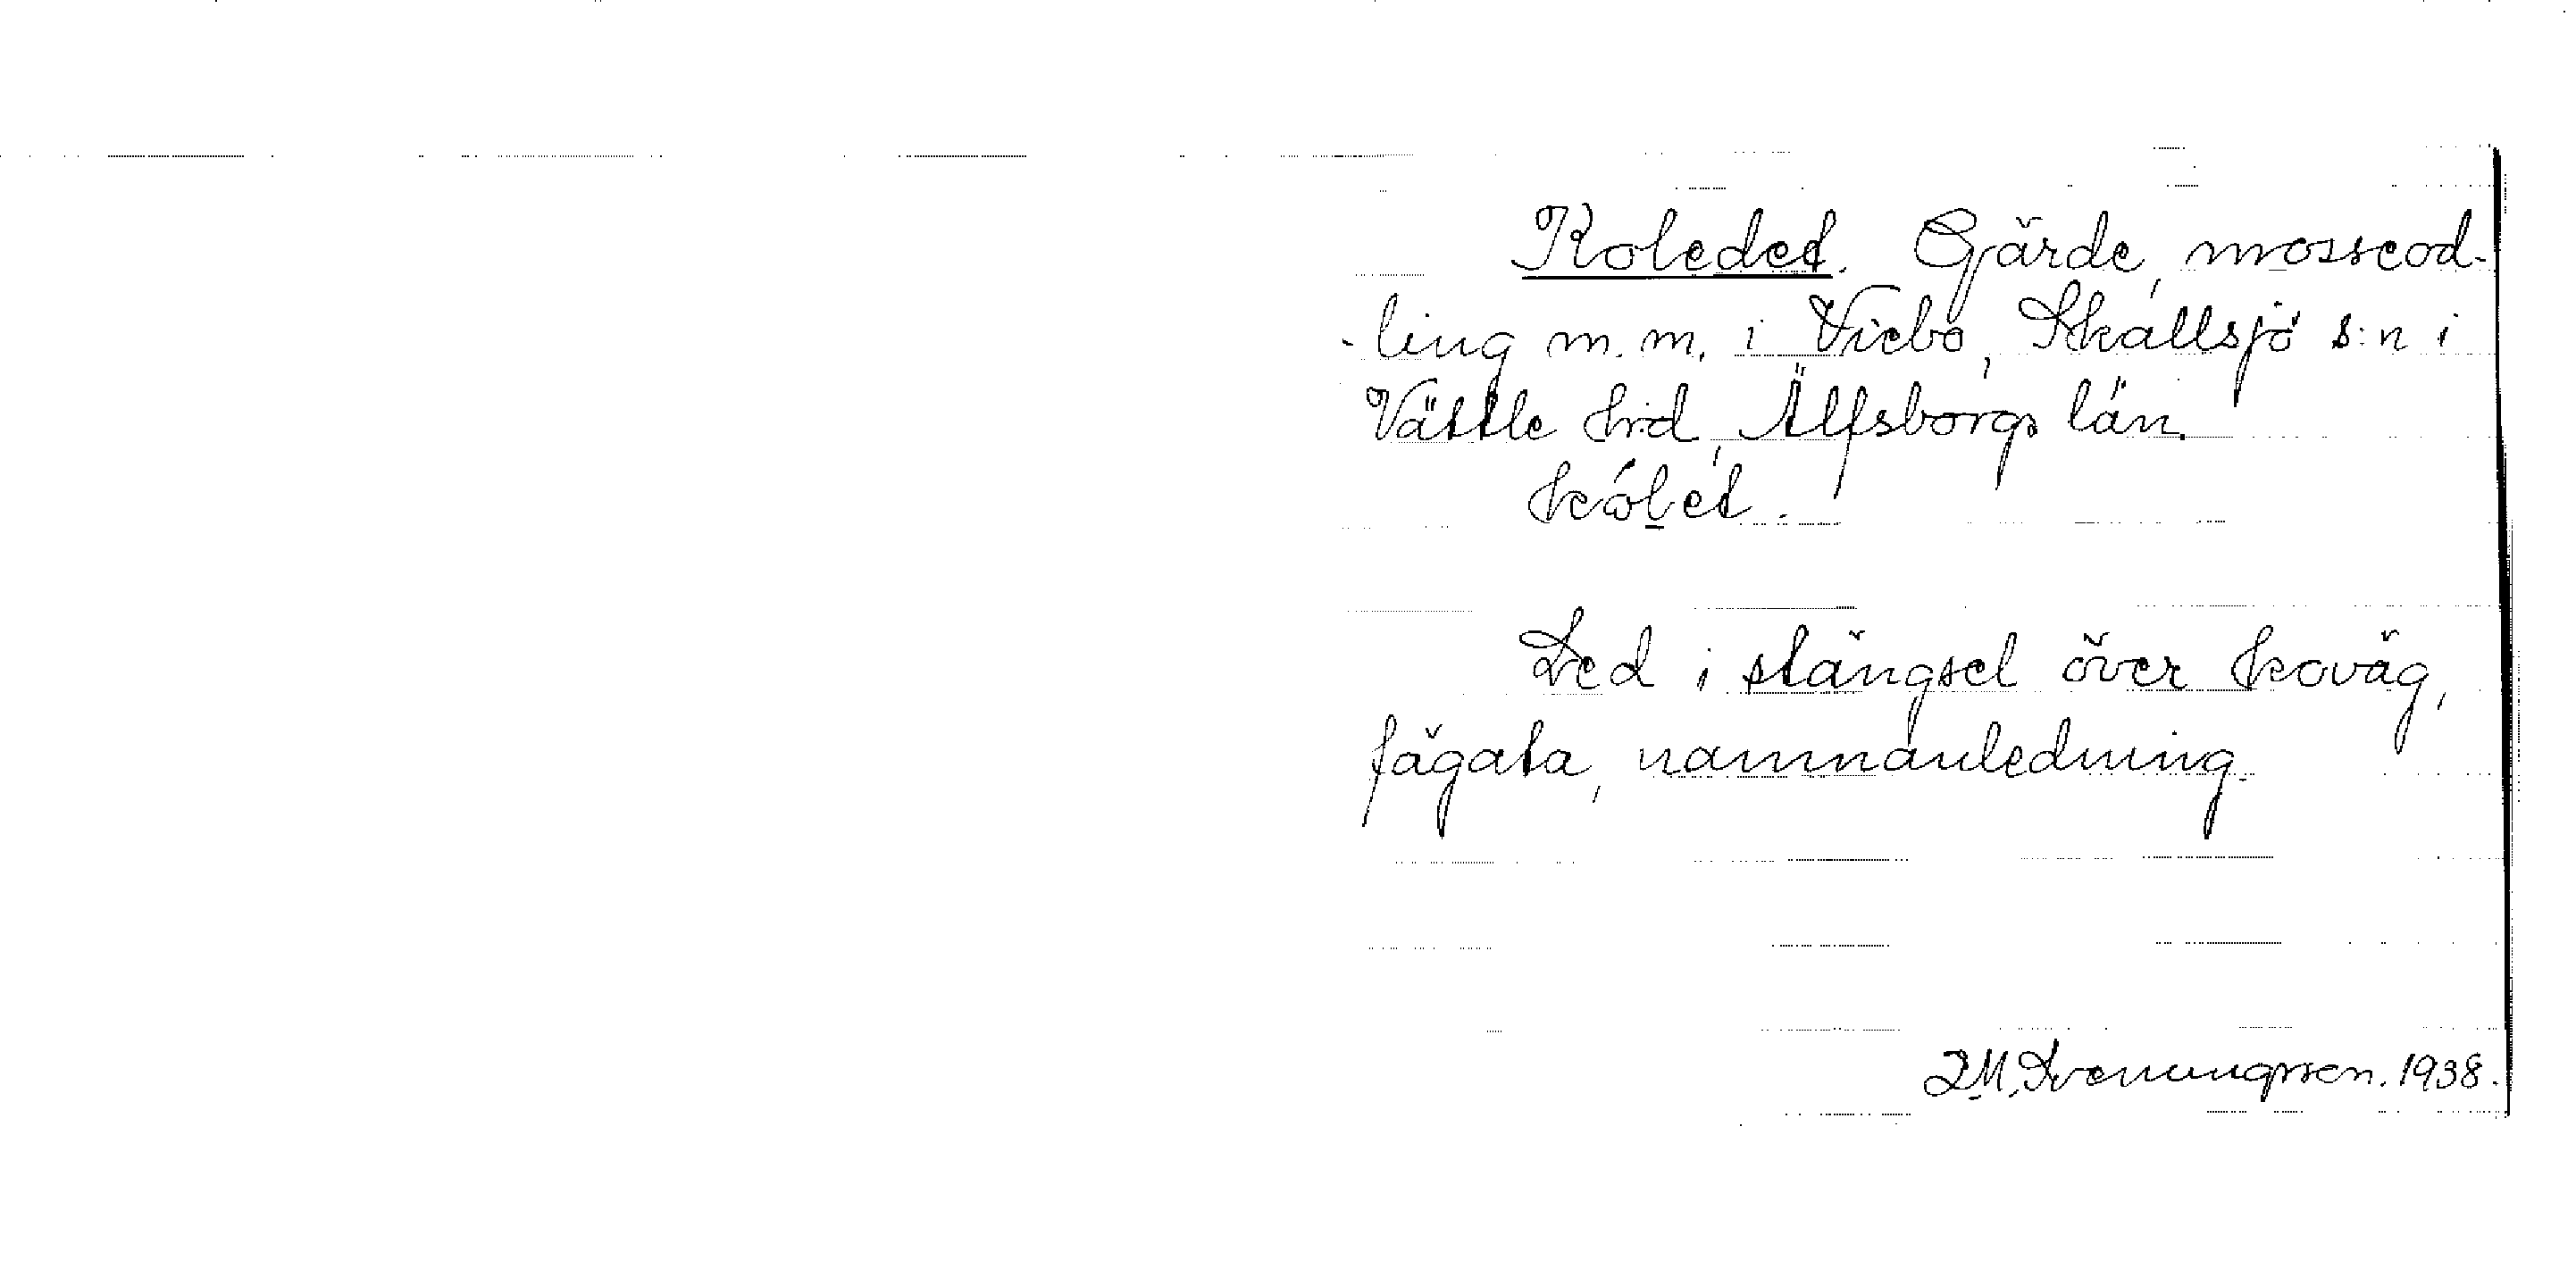 Koledet. Gärde, mosseod-
-ling m.m. i Viebo, Skallsjö s:n i
Vättle hrd, Älfsborgs län.
kólet.
Led i stängsel över koväg,
fägata, namnanledning.
J.M. Svenungssen. 1938.